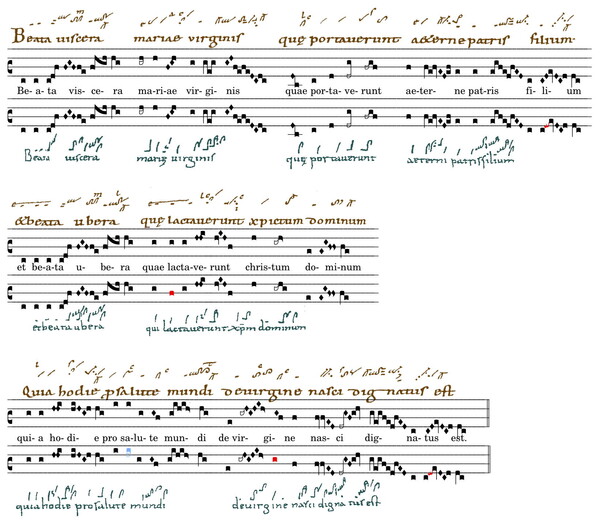 Beata uiscera mariae virginis quę portauerunt aeterne patris filium
Be- a- ta vis- ce- ra ma-ri-ae vir- gi- nis quae por-ta- ve- runt ae-ter- ne pa-tris fi- li- um
Beata uiscera marię uirginis quę portauerunt aeterni patris filium
& beata ubera quę lactauerunt xpictum dominum
et be-a-ta u- be- ra quae lacta-ve- runt chris-tum do- mi-num
et beata ubera qui lactauerunt xpm dominum
Quia hodie p salute mundi deuirgine nasci dignatus est
qui- a ho- di- e pro sa-lu- te mun- di de vir- gi- ne nas- ci dig- na-tus est.
quia hodie pro salute mundi deuirgine nasci dignatus est